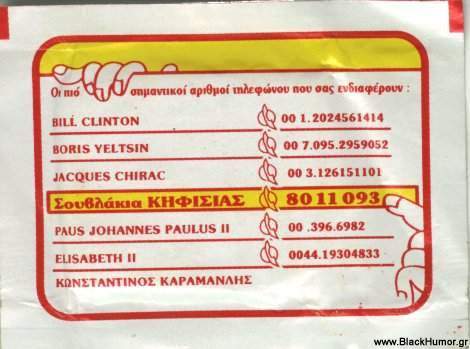 Οι πιό σημαντικοί αριθμοί τηλεφώνου που σας ενδιαφέρουν :
BILL CLINTON 00 1.2024561414
BORIS YELTSIN 00 7.095.2959052
JACQUES CHIRAC 00 3.126151101
Σουβλάκια ΚΗΦΙΣΙΑΣ 80 11 093
PAUS JOHANNES PAULUS II 00 .396.6982
ELISABETH II 0044.19304833
ΚΩΝΣΤΑΝΤΙΝΟΣ ΚΑΡΑΜΑΝΛΗΣ
www.BlackHumor.gr